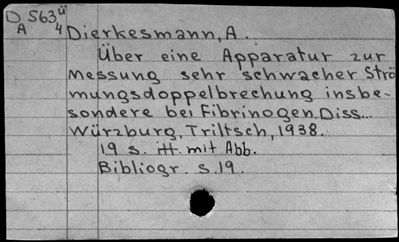 D 563ü
A 4
Dierkesmann, A.
Über eine Apparatur zur
Messung sehr schwacher Strö
mungsdoppelbrechung insbe-
sondere bei Fibrinogen. Diss...
Würzburg, Triltsch, 1938.
19 s. H. mit Abb.
Bibliogr. s. 19.